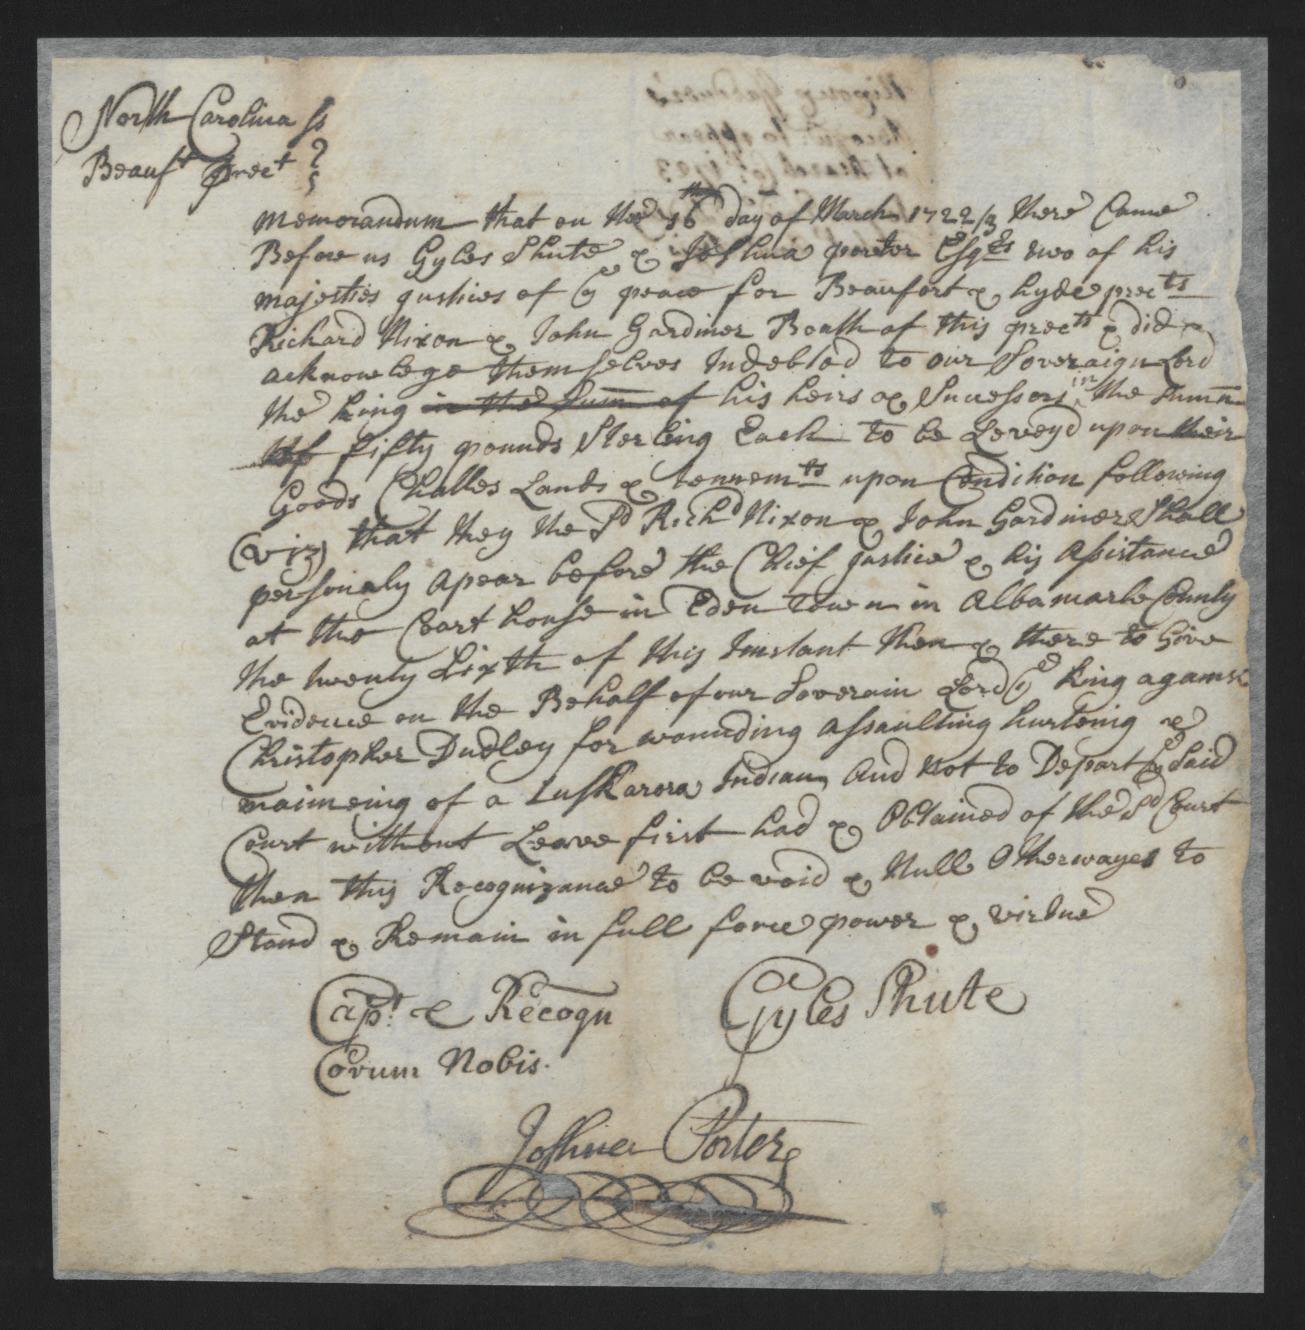 North Carolina ss
Beauft Prect
Memorandum that on the 16th day of March 1722/3 there Came
Before us Gyles Shute & Joshua porter Esqrs two of his
majesties justices of ye peace for Beaufort & hyde prects
Richard Nixon & John Gardiner Boath of this prects & did
acknowlege themselves Indebted to our Soveraign Lord
the king in the Summ of his heirs & Sucessors in the Summ
of fifty pounds Sterling Each to be Leveyd upon their
Goods Chattles Lands & tennemts upon Condition following
(viz) that they the sd Richd Nixon & John Gardiner Shall
personaly apear before the Chief justice & his Assistance
at the Court house in Eden Town in Albamarle County
the twenty Sixth of this Instant then & there to Give
Evidence on the Behalf of our Soverain Lord ye king against
Christopher Dudley for wounding assaulting hurteing &
maimeing of a Tuskarora Indian And Not to Depart ye Said
Court without Leave first had & Obtained of the sd Court
then this Recognizance to be void & Null Otherwayes to
Stand & Remain in full force power & virtue
Capt & Recogn
Corum Nobis.
Gyles Shute
Joshua Porter